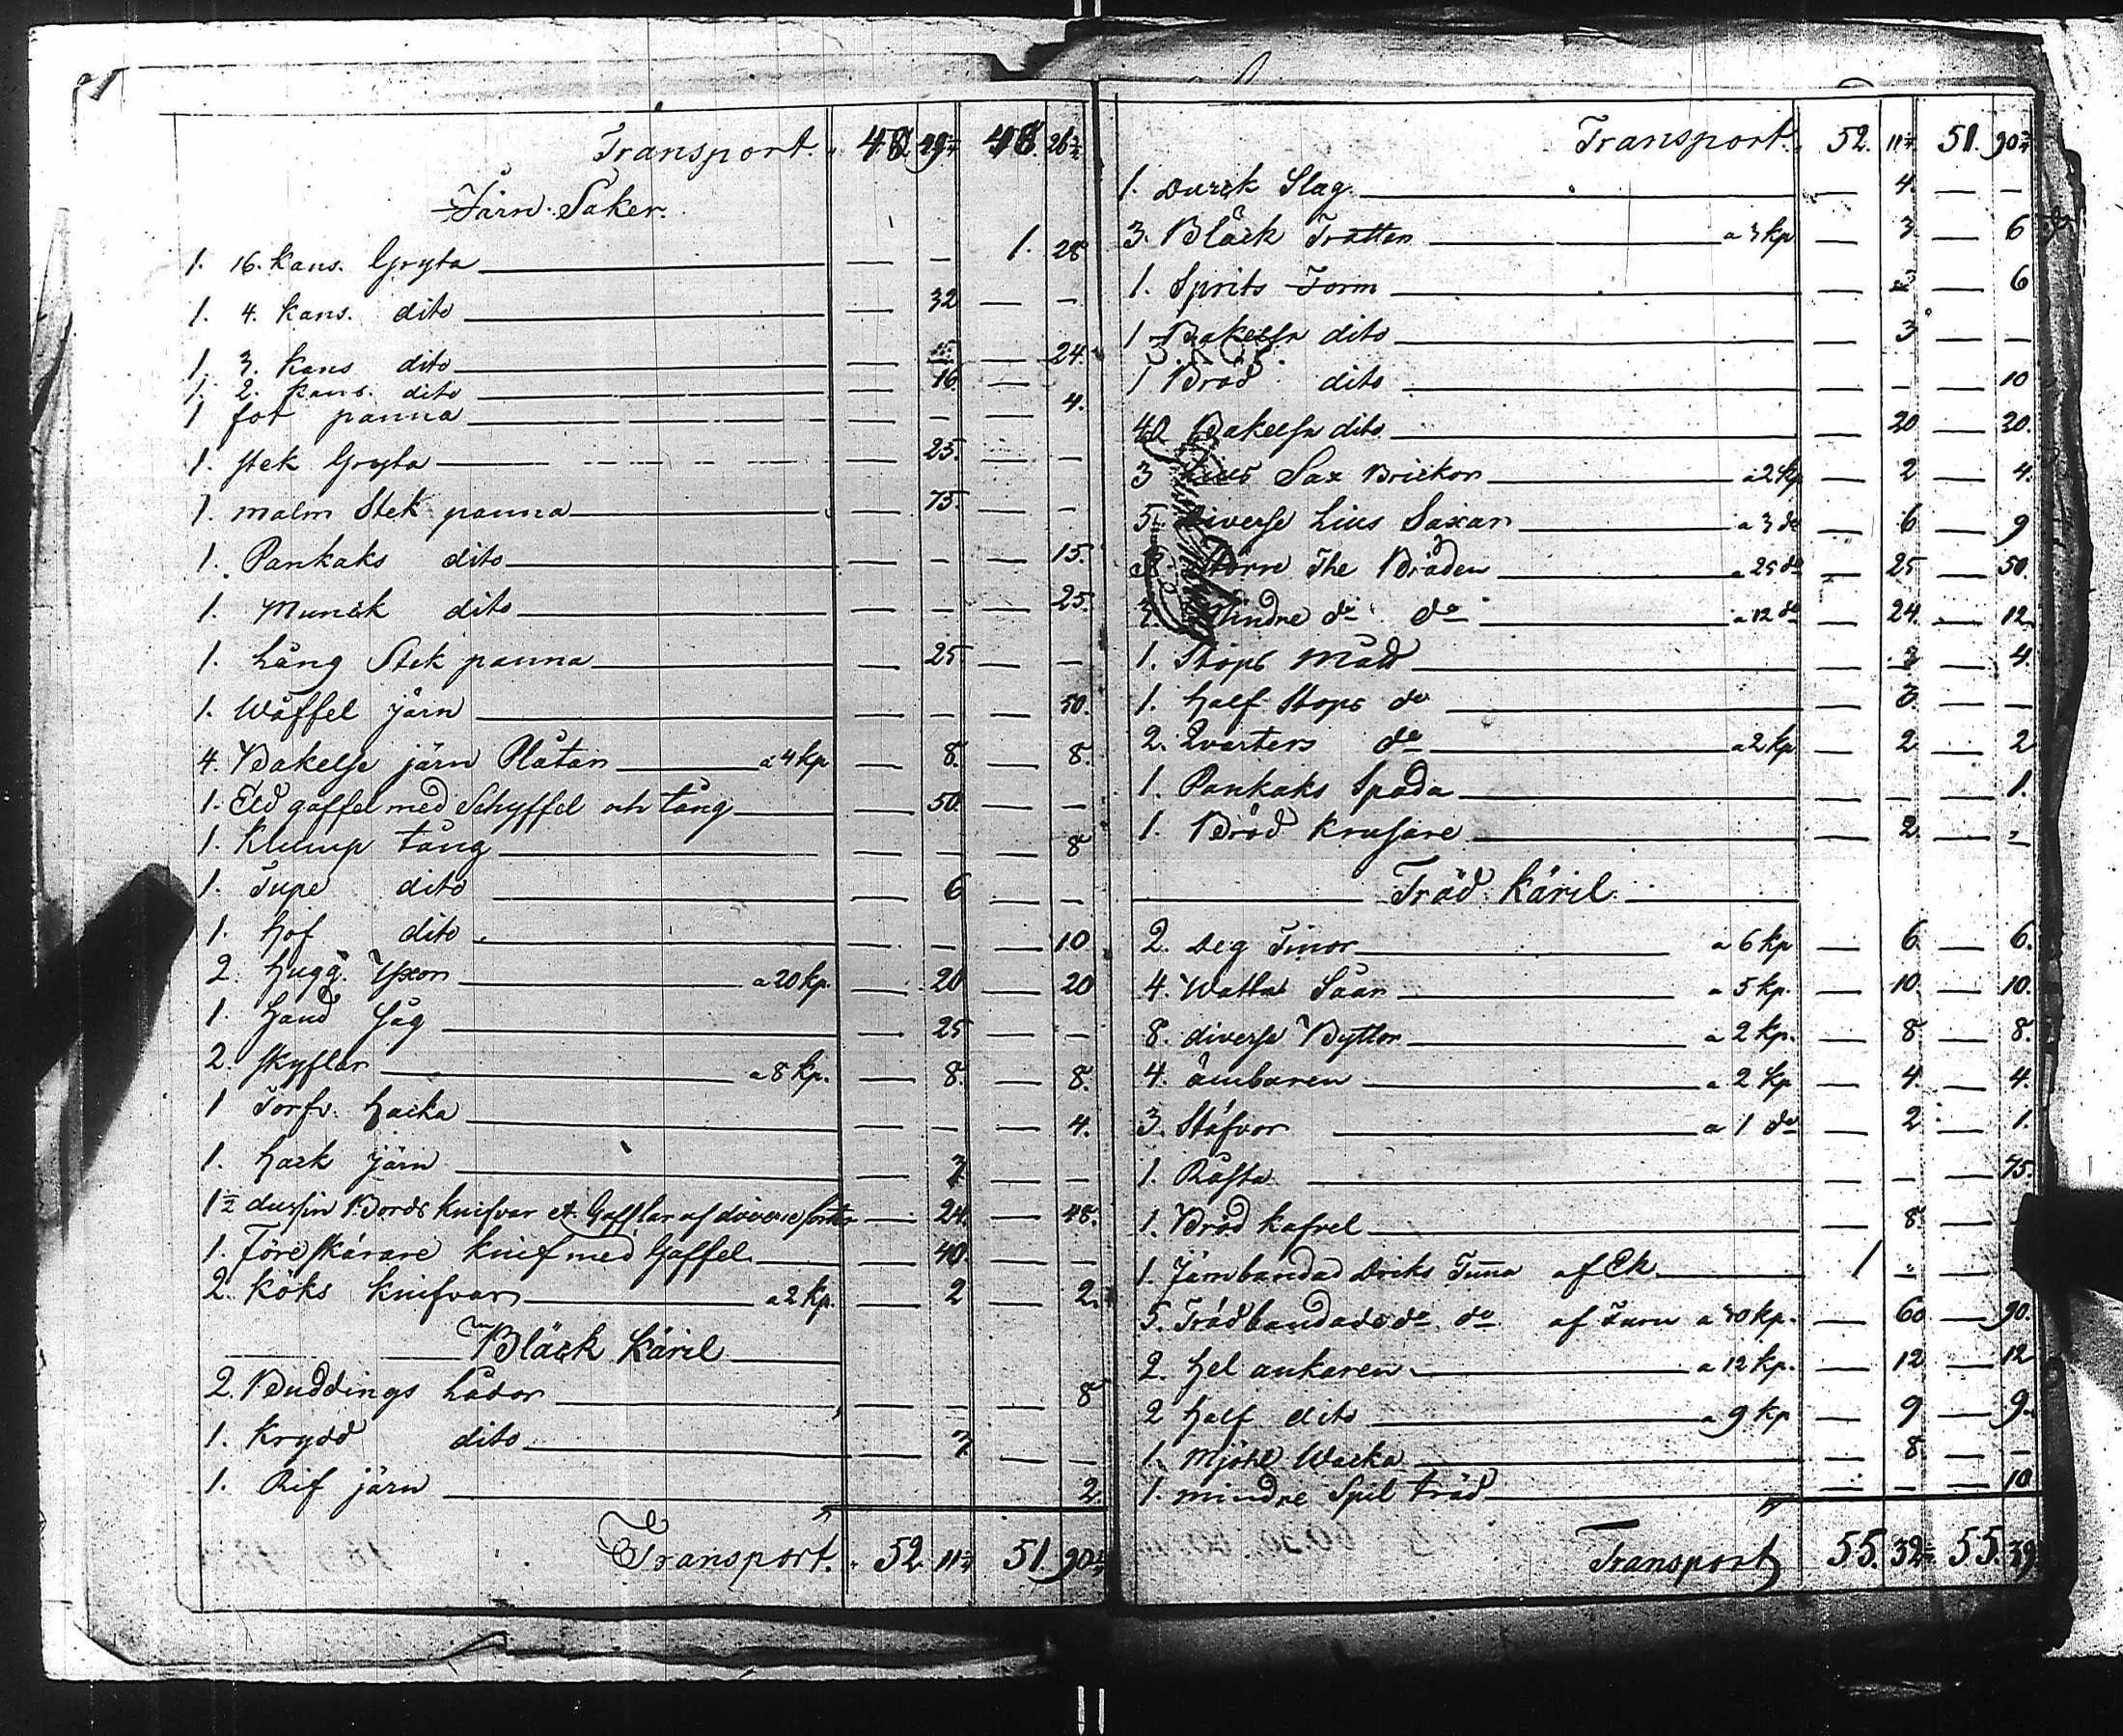 Transport. 48. 29 48. 26½
Järn Saker.
1. 16. kans. Gryta — — 1. 28
1. 4. kans. dito — 32 — —
1. 3. kans dito — — — 24.
1. 2. kans. dito — 16 —
1 fot panna — — — 4.
1. Stek Gryta — 25. — —
1. malm Stek panna — 75. — —
1. Pankaks dito — — — 15.
1. Munck dito — — — 25.
1. Lång Stek panna — 25 — —
1. Wåffel järn — — — 50.
4. Bakelse järn Plåtar a 4 kp — 8. — 8.
1. Eld gaffel med Schyffel och tång — 50. — —
1. Klump tång — — — 8
1. Tupe dito — 6 — —
1. Hof dito — — — 10
2. Hugg Yxor a 20 kp. — 20 — 20
1. Hand Såg — 25 — —
2. Skyflar a 8 kp. — 8. — 8.
1 Torfv. Hacka — — — 4.
1. Hack järn — 3 — —
1½ dussin Bords knifvar et. Gafflar af diverse sorter — 24. — 48.
1. Före Skärare knif med Gaffel — 40. — —
2. Köks knifvar a 2 kp. — 2 — 2.
Bläck Käril
2. Buddings Lådor — — — 8
1. Krydd dito — 3. — —
1. Rif järn 2.
Transport. 52. 11½ 51. 90½
Transport. 52. 11½ 51. 90½
1. Durck Slag — 4. — —
3. Bläck Trattar a 3 kp — 3 — 6
1. Sprits Form — — 6
1 Bakelse dito — 3 — —
1 Bröd dito — — — 10
40 Bakelse dito — 20 — 20.
3 Lius Sax Brickor a 2 kp — 2 — 4.
5. Diverse Lius Saxar a 3 do — 6 — 9
3 Större The Bräden a 25 do — 25 — 50.
3. Mindre do do a 12 do — 24. — 12.
1. Stops Mått — — 4.
1. Half Stops do — 3 — —
2. Qvarters do a 2 kp — 2 — 2
1. Pankaks Spada — — — 1.
1. Bröd Krusare — 2 — —
Träd Käril
2. Deg Tinor a 6 kp — 6 — 6.
4. Watten Såar a 5 kp. — 10. — 10.
8. diverse Byttor a 2 kp. — 8 — 8.
4. ämbaren a 2 kp — 4. — 4.
3. Stäfvor a 1 do — 2 — 1.
1. Råsta — — — 75.
1. Bröd kafvel — 8 —
1. Järnbandad Driks Tunna af Ek 1 — —
5. Trädbandade do do af Furu a 30 kp. — 60 — 90.
2. Hel ankaren a 12 kp. — 12 — 12
2 Half dito a 9 kp — 9 — 9
1. Mjöhl Wacka — 8. — —
1. mindre Spil träd — — — 10
Transport 55. 32½ 55. 39.